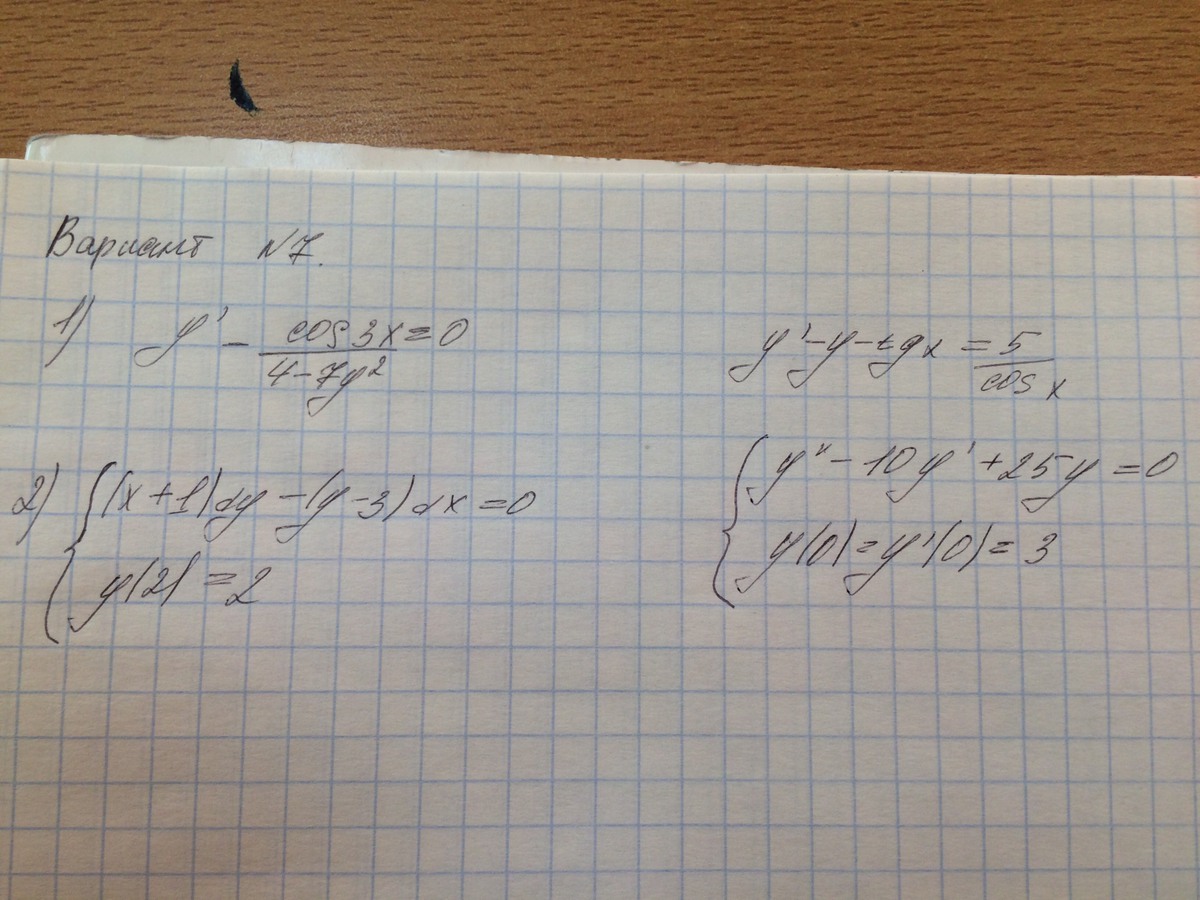 Вариант N7.
1) y' - cos3x/(4-7y²) = 0
y' - y - tgx = 5/cos x
2) { (x+1)dy - (y-3)dx = 0
y(2) = 2
{ y'' - 10y' + 25y = 0
y(0) = y'(0) = 3